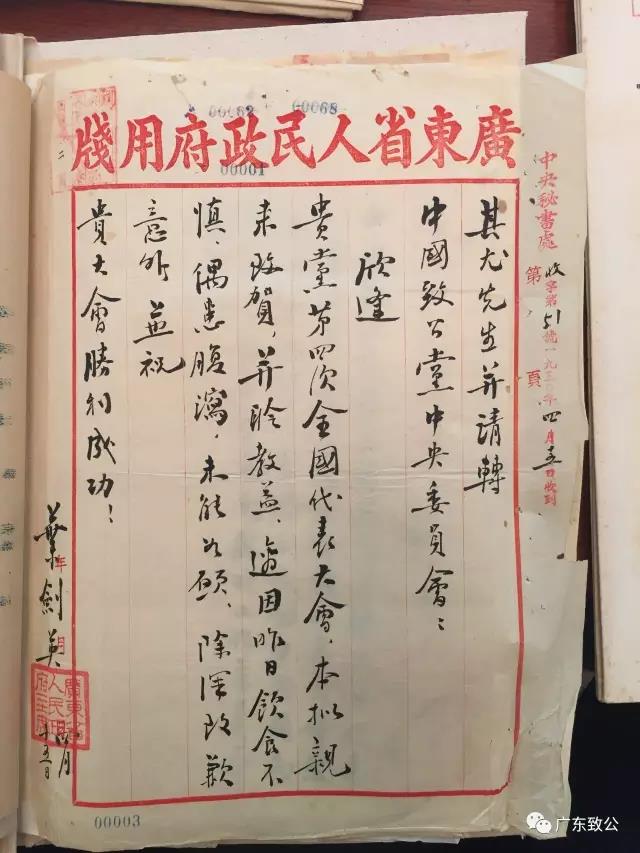 00062 00068
廣東省人民政府用牋
00001
中央秘書處
收字第51號一九五〇年四月五日收到
第 頁
其尤先生并請轉
中國致公黨中央委員會:
欣逢
貴黨第四次全國代表大會,本拟親
来致賀,并聆教益,適因昨日飲食不
慎,偶患腹瀉,未能如願,除深致歉
意外,並祝
貴大會勝利成功!
葉劍英
四月
五日
年 月
00003
广东致公